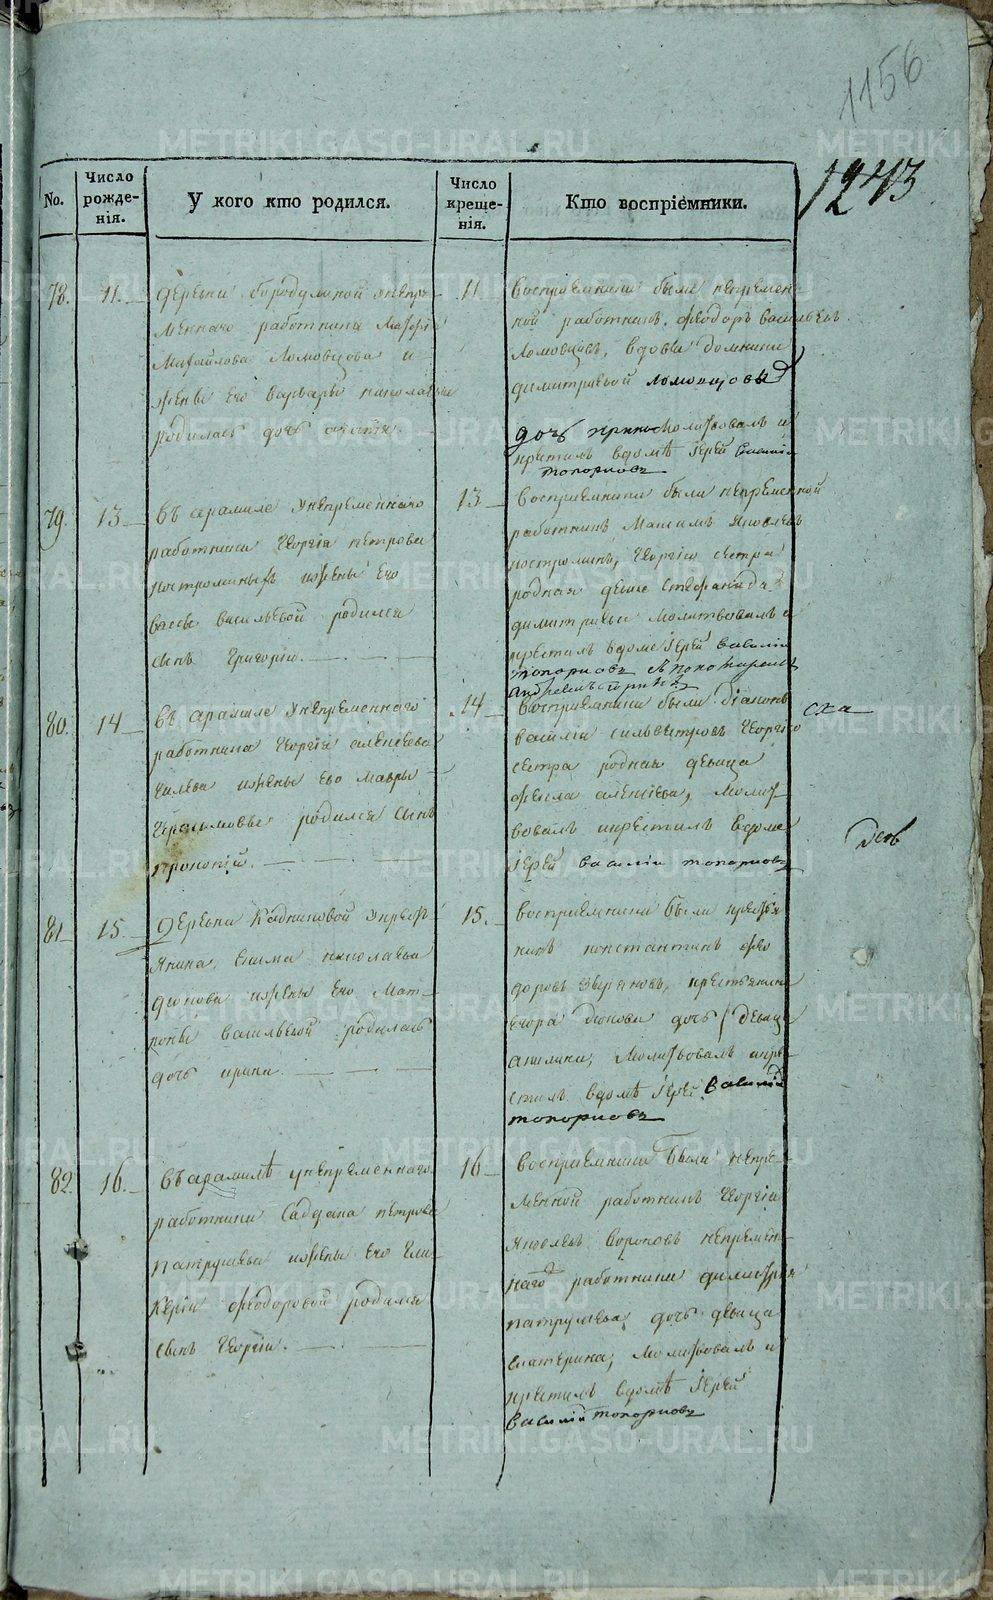 1156
1243
No.
Число рожде-нія.
У кого кто родился.
Число креще-нія.
Кто воспріемники.
78.
11.
деревни бородулиной унепре-
меннаго работника
Михайлова Ломовцова и
жены его варвары николаевы
родилась дочь агафья
11
воспріемники были непремен-
ной работникъ феодоръ васильевъ
Ломовцовъ, вдовы домники
димитріевой ломовцовой
дочь молитвовалъ и
крестилъ вдомѣ Іерей василій
топорковъ
79.
13
въ арамиле унепременнаго
работника Георгія петрова
костромина и жены его
вассы васильевой родился
сынъ Григорій.
13
Воспріемники были непременной
работникъ Максимъ Яковлевъ
костроминъ, Георгія сестра
родная девица Стефанида
димитріева молитвовалъ и
крестилъ вдоме Іерей василій
топорковъ
80.
14
въ арамиле унепременнаго
работника Георгія алексеева
и жены его мавры
Герасимовы родился сынъ
прокопій.
14
Воспріемники были діаконъ
василій сильвестровъ Георгія
сестра родная девица
фекла алексіева, молит-
вовалъ икрестилъ вдоме
Іерей василій топорковъ
81
15.
Деревни Кадниковой укресть-
янина екима николаева
дюкова и жены его мат-
роны васильевой родилась
дочь ирина.
15.
воспріемники были крестья-
нинъ константинъ фео
доровъ Зыряновъ, крестьянина
егора дюкова дочь девица
акилина, молитвовалъ икре-
стилъ вдомѣ Іерей василій
топорковъ
82
16.
въ арамилѣ унепременнаго
работника петрова
патрушева и жены его гли-
керіи феодоровой родился
сынъ Георгій.
16
воспріемники были непре-
менной работникъ Георгій
Яковлевъ вороновъ непремен-
наго работника димитрія
патрушева, дочь девица
екатерина, молитвовалъ и
крестилъ вдомѣ Іерей
василій топорковъ
METRIKI.GASO-URAL.RU